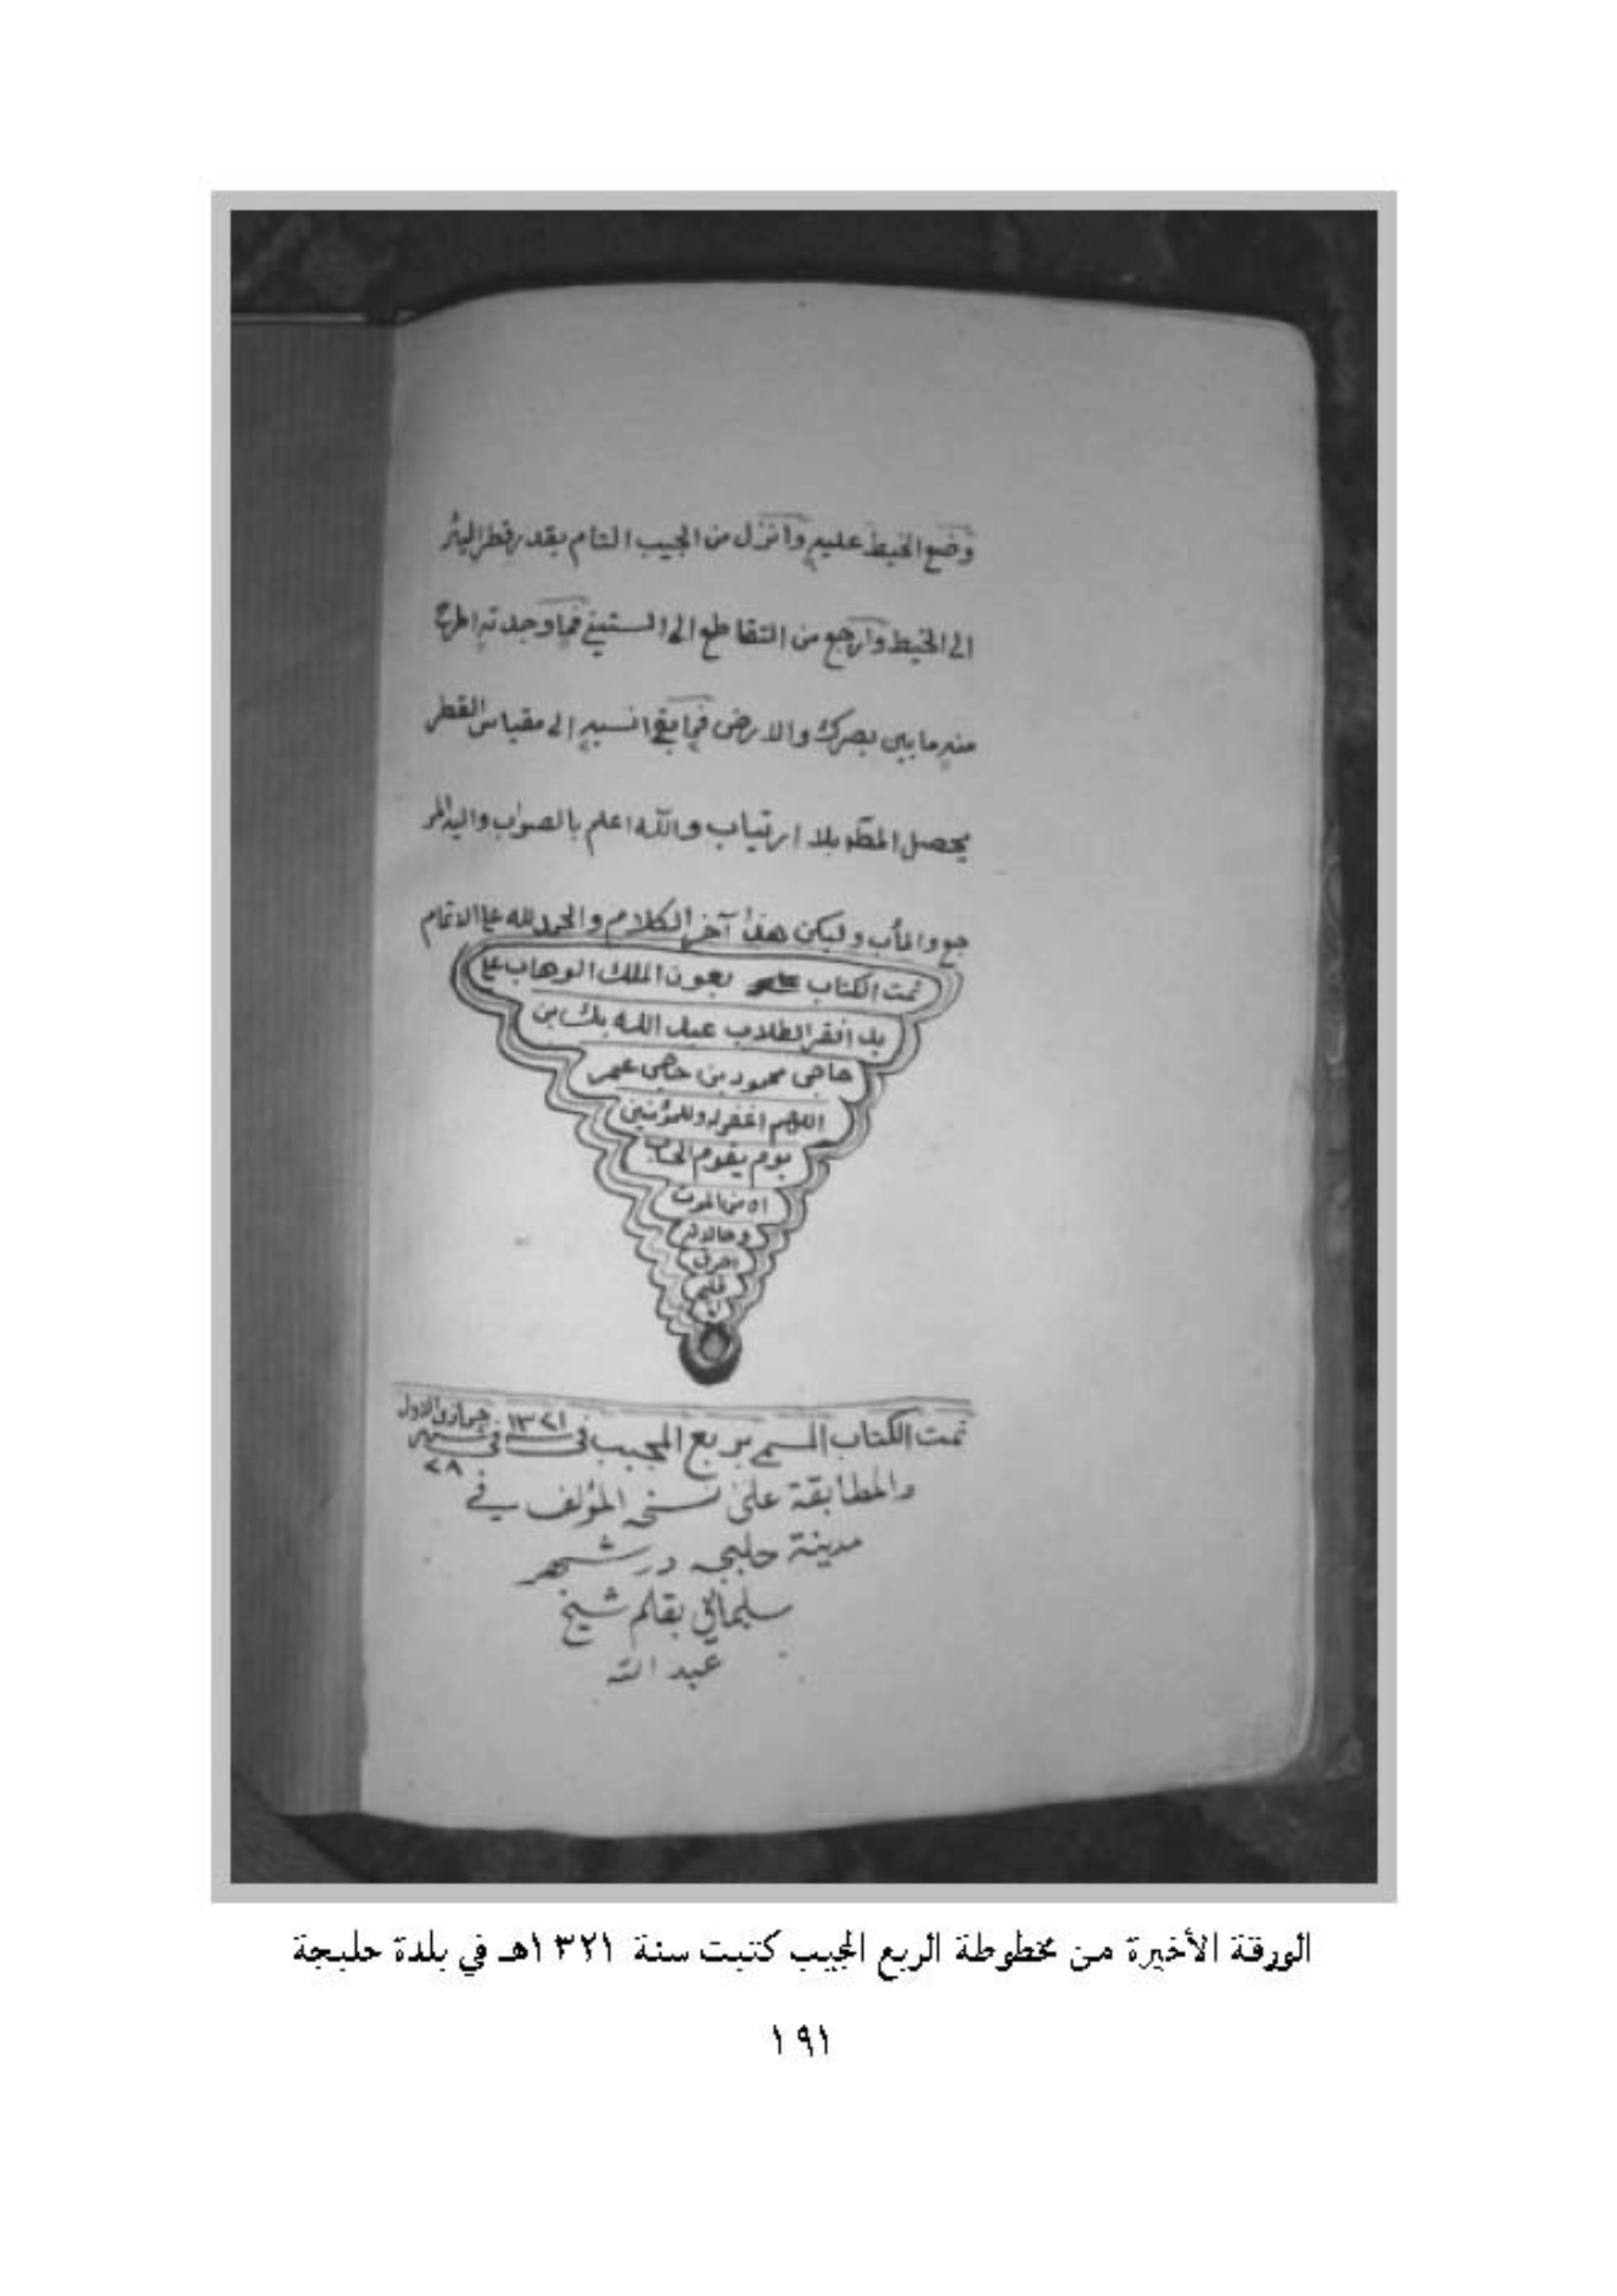 وضع الخيط عليه وانزل من الجيب التام بقدر قطر البئر
الى الخيط وارجع من التقاطع الى الستيني فما وجدته اطرح
منه ما بين بصرك والارض فما بقى انسبه الى مقياس القطر
يحصل المط بلا ارتياب والله اعلم بالصواب واليه المر
جع والمأب وليكن هذا آخر الكلام والحمد لله على الاتمام
تمت الكتاب بعون الملك الوهاب على
يد افقر الطلاب عبد الله بك بن
حاجى محمود بن حاجى عمر
اللهم اغفر له وللمؤمنين
يوم يقوم الحساب
اه من الموت
وحالاته
احرق
قلبى
تمت الكتاب المسمى بربع المجيب فى ١٣٢١ فى جمازى الاول
٢٨
والمطابقة على نسخه المؤلف في
مدينة حلبجه در شهر
سليماني بقلم شيخ
عبد الله
الورقة الأخيرة من مخطوطة الربع المجيب كتبت سنة ١٣٢١هـ في بلدة حلبجة
١٩١